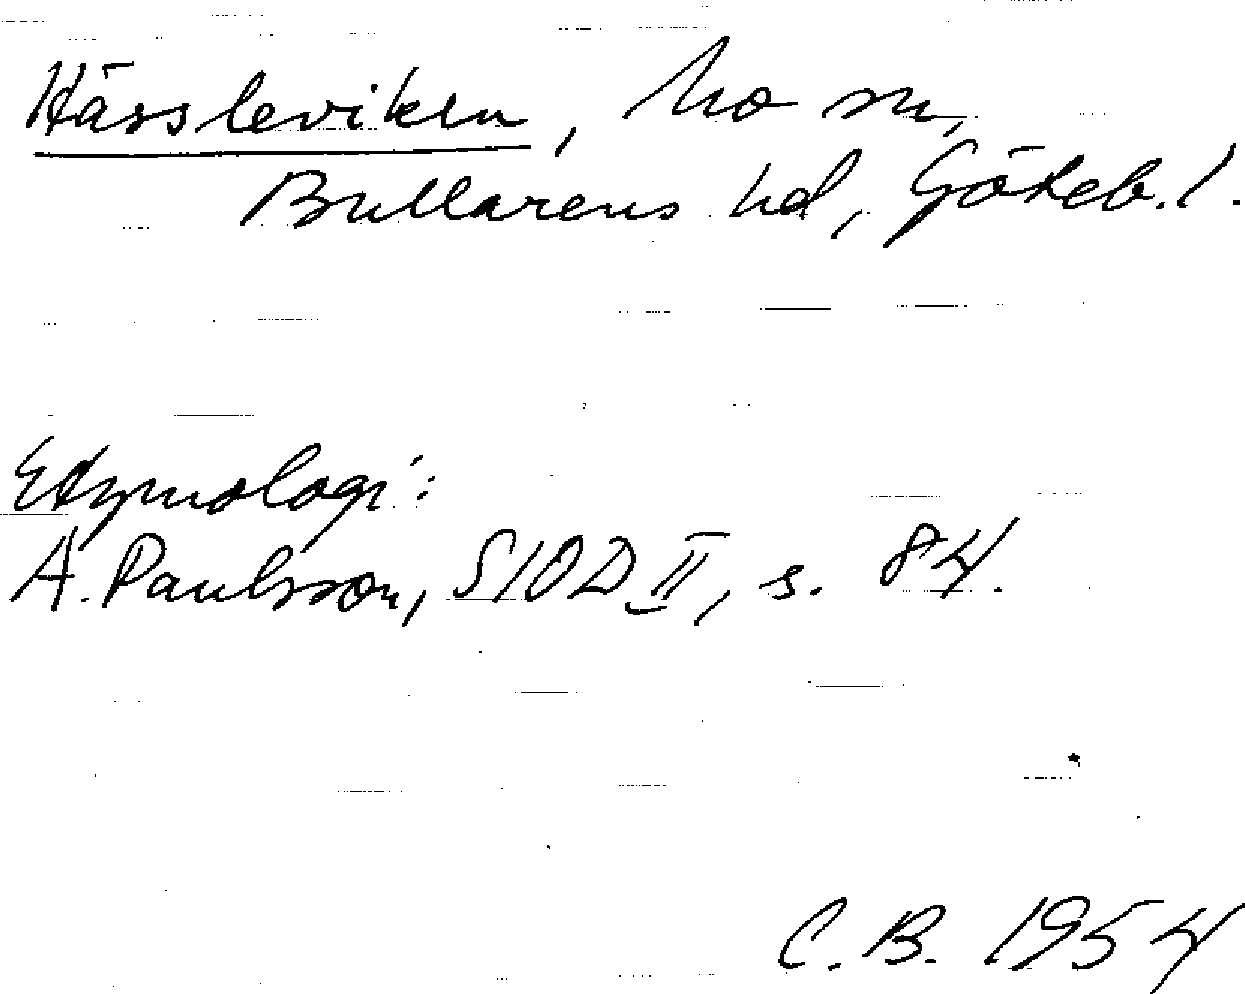 Hässleviken, Mo sn,
Bullarens hd, Göteb. l.
Etymologi:
A. Paulsson, SIOD II, s. 84.
C. B. 1954